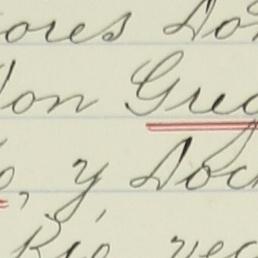 ores Don
Don Greg
o, y Doc
Rio, vec